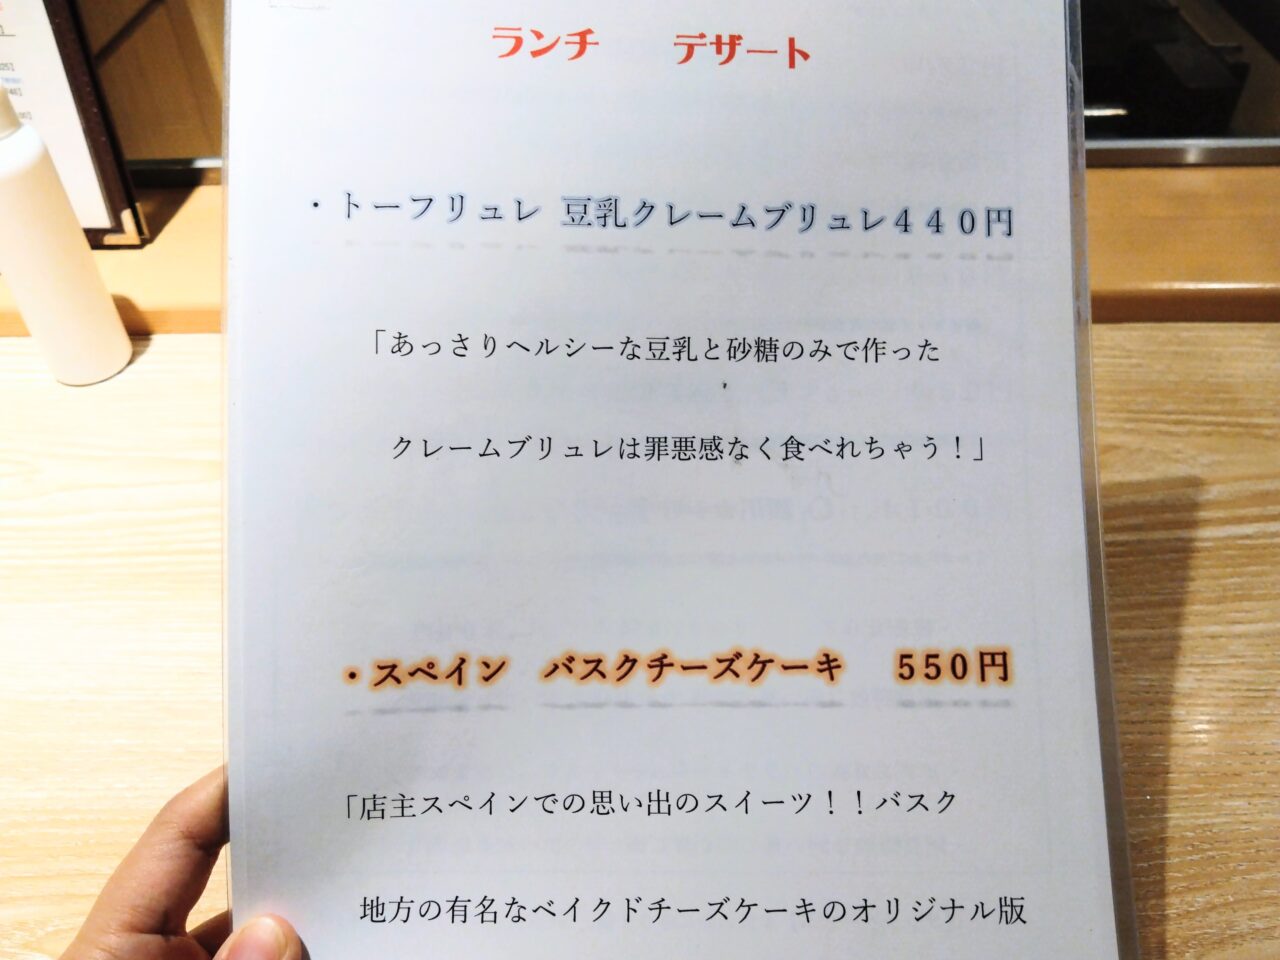 ランチ　デザート
・トーフリュレ 豆乳クレームブリュレ４４０円
「あっさりヘルシーな豆乳と砂糖のみで作った
クレームブリュレは罪悪感なく食べれちゃう！」
・スペイン　バスクチーズケーキ　５５０円
「店主スペインでの思い出のスイーツ！！バスク
地方の有名なベイクドチーズケーキのオリジナル版